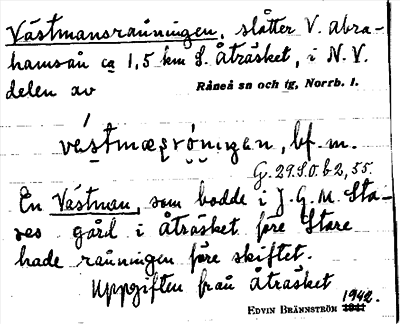 Västmansrauningen, slåtter V. Abra-
hamsån ca 1,5 km S. Åträsket, i N.V.
delen av Råneå sn och tg, Norrb. l.
vástmæsróningan, bf. m.
G. 29.S.O.b2, 55.
En Västman, som bodde i J.G.M. Sta-
res gård i Åträsket före Stare
hade rauningen före skiftet.
Uppgiften från Åträsket
EDVIN BRÄNNSTRÖM 1942.